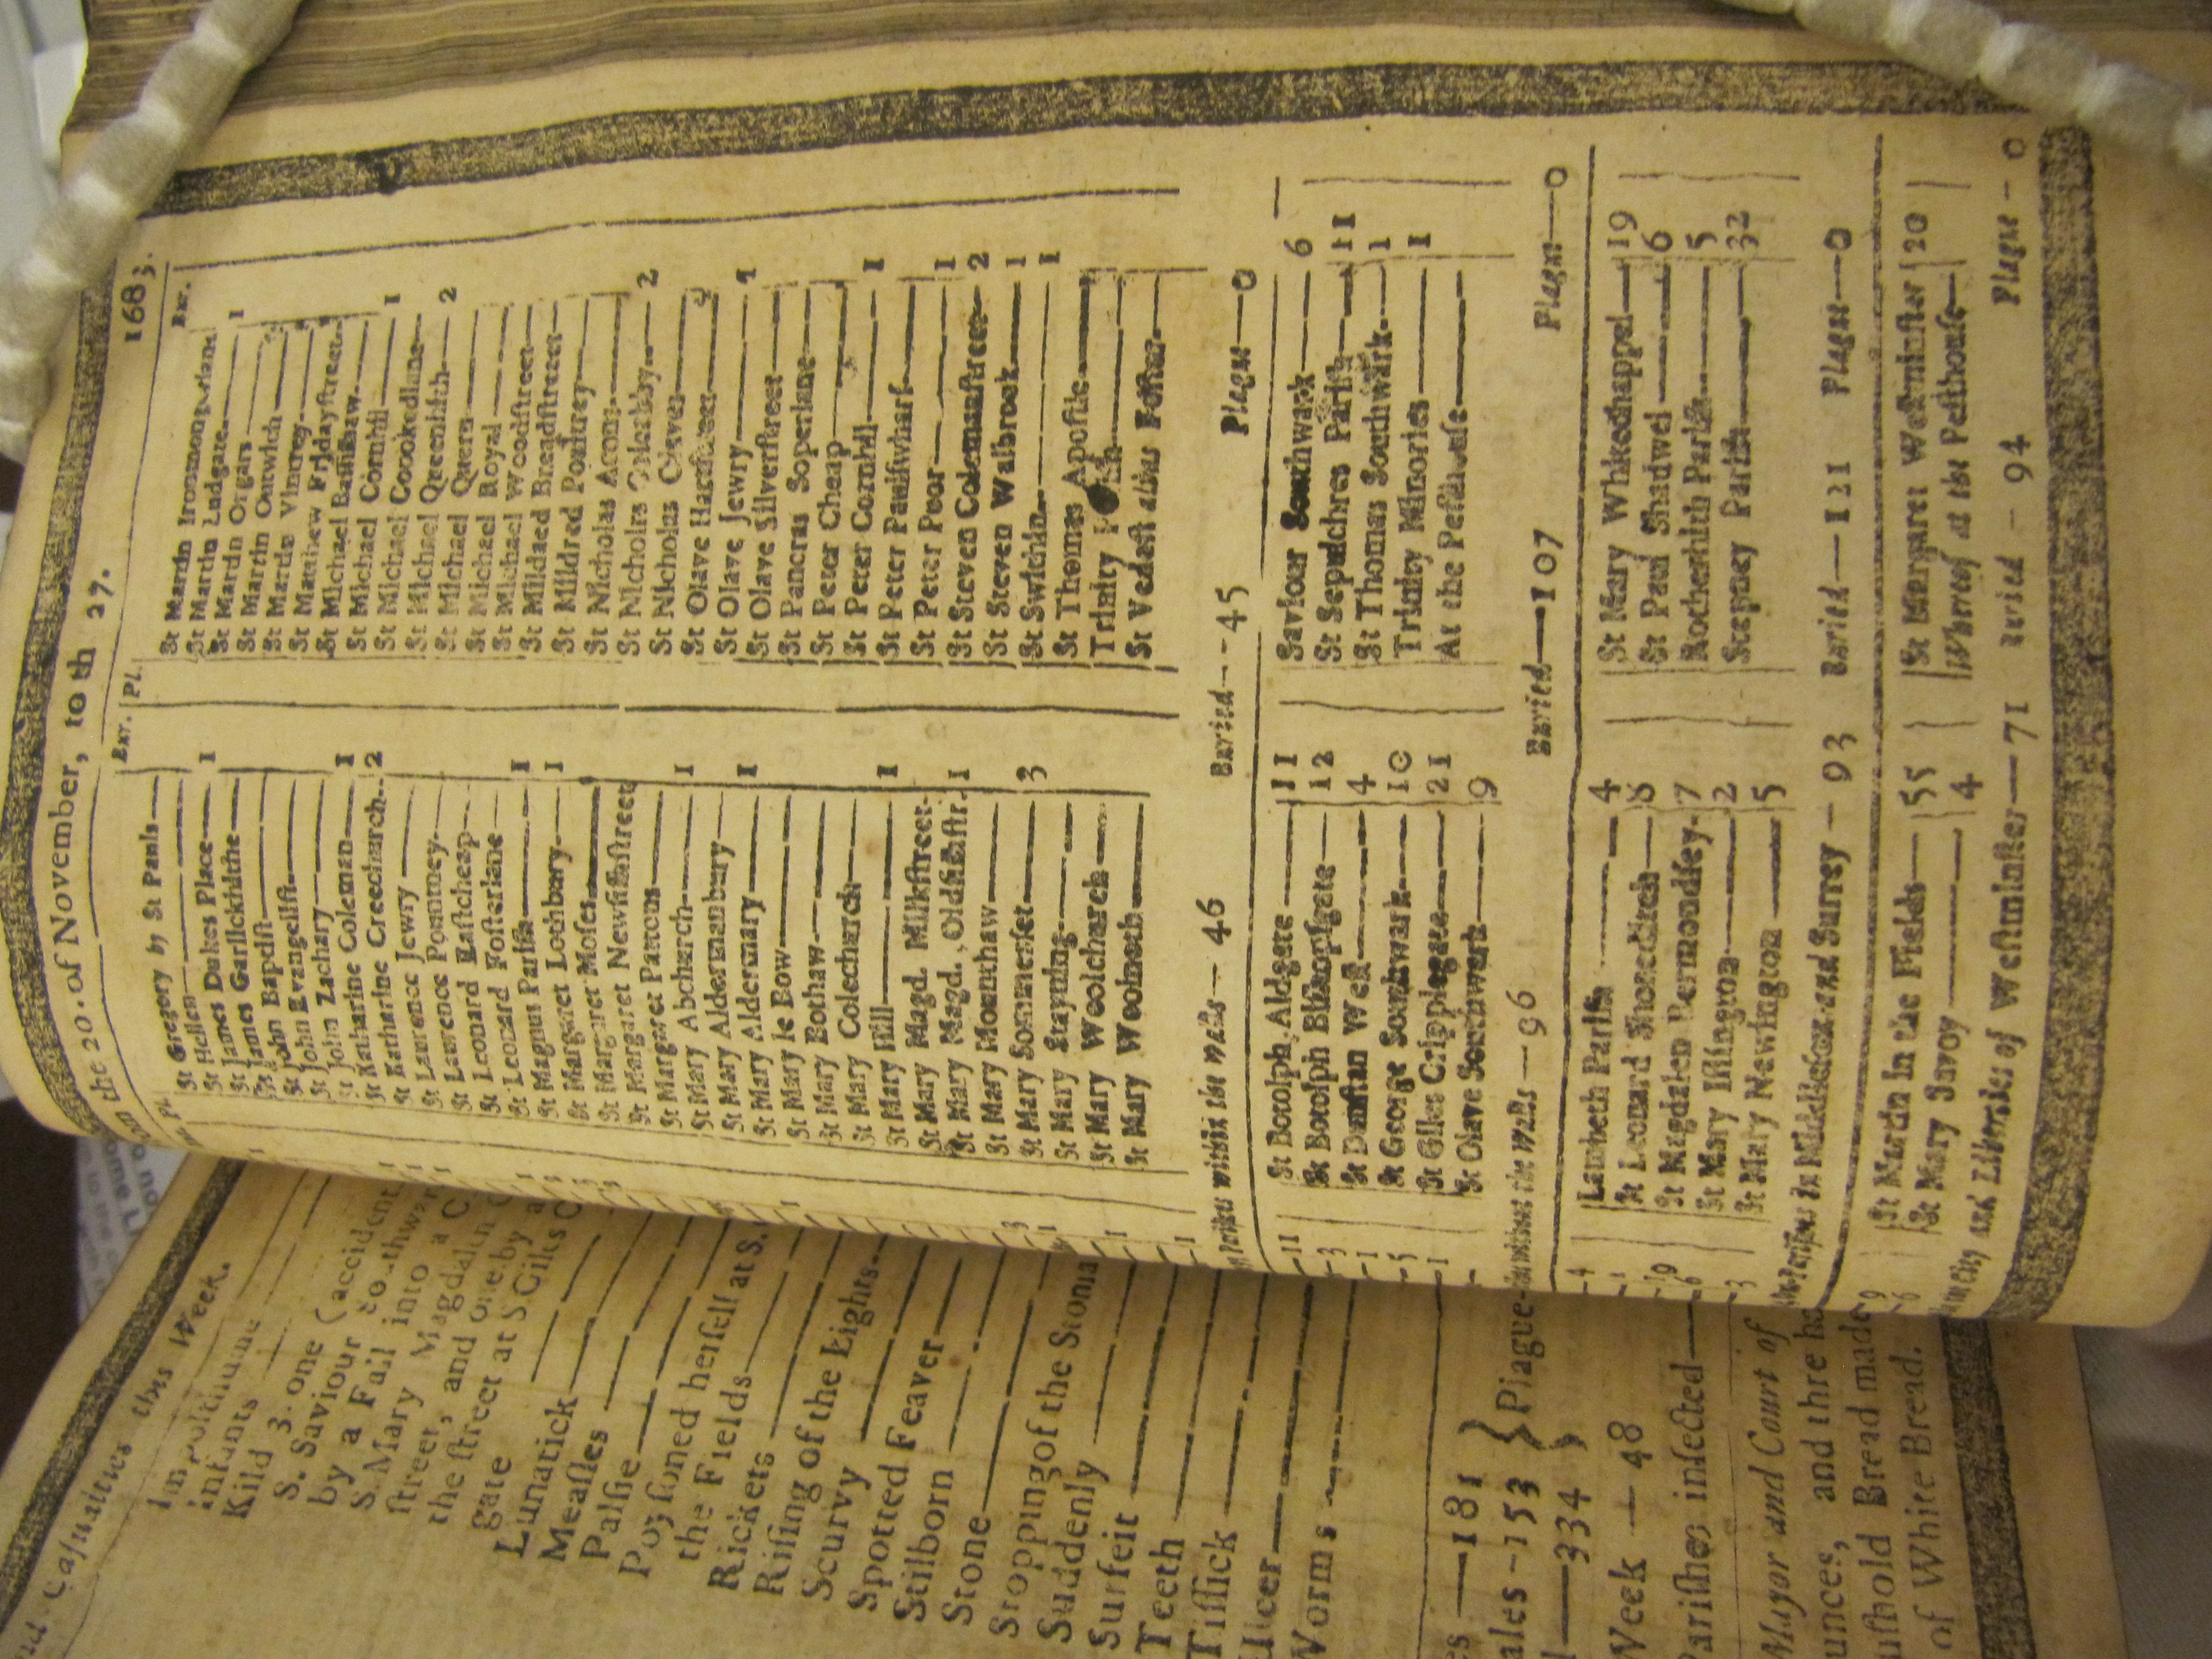 m the 20. of November, to th 27. 1683.
Pl. Bur. Pl. Bur.
St Gregory by St Pauls
St Hellen
St James Dukes Place 1
St James Garlickhithe
St John Baptist
St John Evangelist
St John Zachary
St Katharine Coleman 1
St Katharine Creechurch 2
St Lawrence Jewry
St Lawrence Pountney
St Leonard Eastcheap
St Leonard Fosterlane
St Magnus Parish 1
St Margaret Lothbury 1
St Margaret Moses
St Margaret Newfishstreet
St Margaret Pattons
St Mary Abchurch 1
St Mary Aldermanbury
St Mary Aldermary 1
St Mary le Bow
St Mary Bothaw
St Mary Colechurch
St Mary Hill 1
St Mary Magd. Milkstreet
St Mary Magd. Oldfishstr. 1
St Mary Mounthaw
St Mary Sommerset 3
St Mary Stayning
St Mary Woolchurch
St Mary Woolnoth
St Martin Ironmongerlane
St Martin Ludgate 1
St Martin Orgars
St Martin Outwich
St Martin Vintrey
St Matthew Fridaystreet
St Michael Bassishaw
St Michael Cornhil 1
St Michael Crookedlane
St Michael Queenhith 2
St Michael Quern
St Michael Royal
St Michael Woodstreet
St Mildred Breadstreet
St Mildred Poultrey
St Nicholas Acons
St Nicholas Coleabby 2
St Nicholas Olaves
St Olave Hartstreet
St Olave Jewry 1
St Olave Silverstreet
St Pancras Soperlane
St Peter Cheap
St Peter Cornhil 1
St Peter Paulswharf
St Peter Poor 1
St Steven Colemanstreet 2
St Steven Walbrook 1
St Swithin 1
St Thomas Apostle
Trinity
St Vedast alias Foster
Parishes within the walls — 46 Buried — 45 Plague — 0
St Botolph Aldgate 11
St Botolph Bishopsgate 12
St Dunstan West 4
St George Southwark 10
St Giles Cripplegate 21
St Olave Southwark 9
Saviour Southwark 6
St Sepulchres Parish 11
St Thomas Southwark 1
Trinity Minories 1
At the Pesthouse
without the Walls — 96 Buried — 107 Plague — 0
Lambeth Parish 4
St Leonard Shoreditch 8
St Magdalen Bermondsey 7
St Mary Islington 2
St Mary Newington 5
St Mary Whitechappel 19
St Paul Shadwel 6
Rotherhith Parish 5
Stepney Parish 32
Parishes in Middlesex and Surrey — 93 Buried — 121 Plague — 0
St Martin in the Fields 55
St Mary Savoy 4
St Margaret Westminster 20
Whereof at the Pesthouse
City and Liberties of Westminster — 71 Buried — 94 Plague — 0
Casualties this Week.
Imposthume
infants
Kild 3. one (accident
S. Saviour Southwar
by a Fall into a C
S. Mary Magdalen
street, and one by a
the street at S Giles C
gate
Lunatick
Measles
Palsie
Poysoned herself at S.
the Fields
Rickets
Rising of the Lights
Scurvy
Spotted Feaver
Stilborn
Stone
Stopping of the Stoma
Suddenly
Surfeit
Teeth
Tissick
Ulcer
Worms
es — 181
ales - 153 } Plague
l — 334
Week — 48
Parishes infected
Mayor and Court of
unces, and thre ha
ushold Bread made
of White Bread.